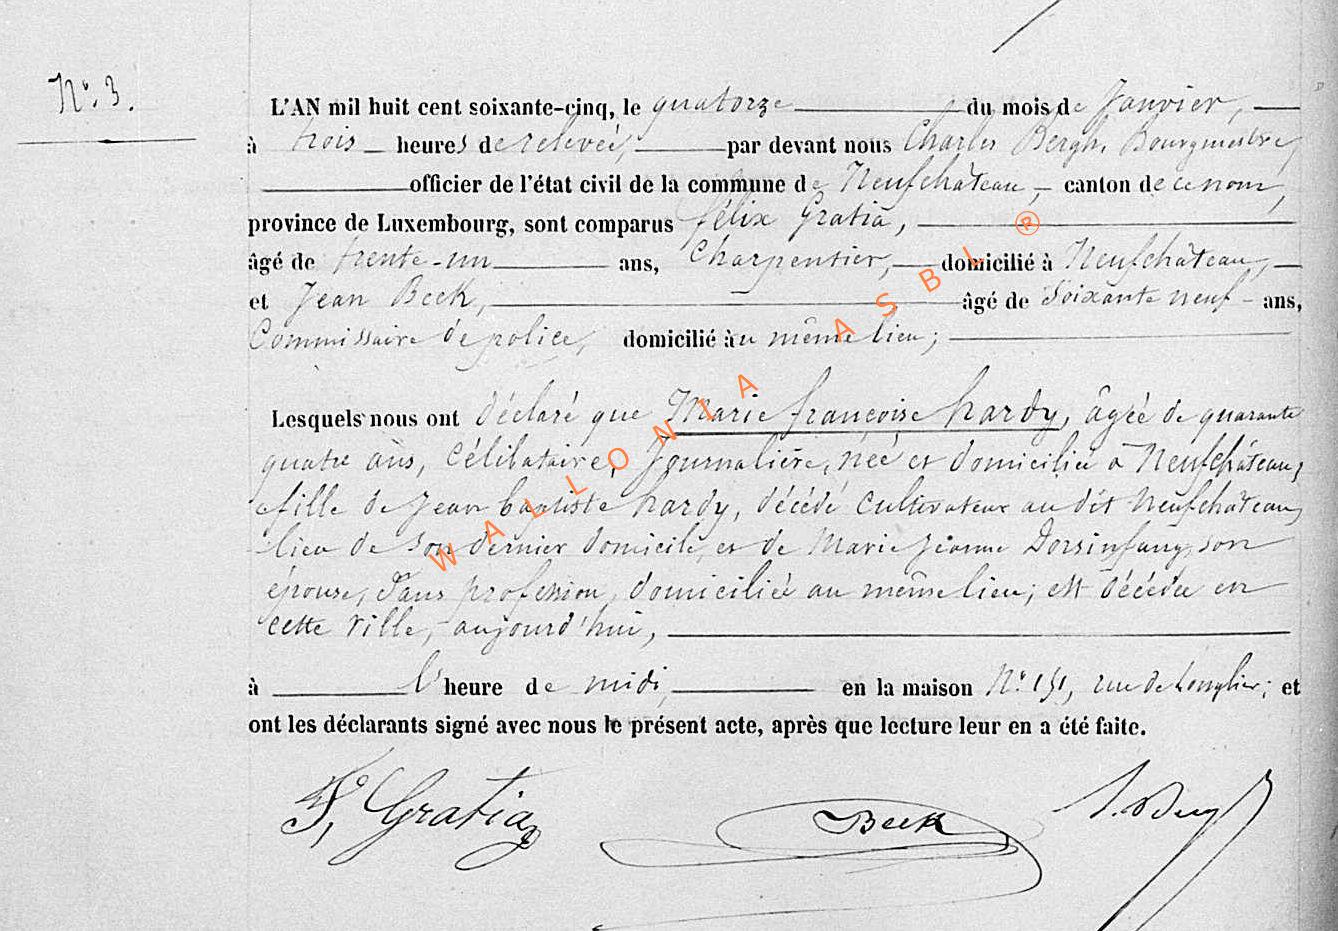 N°. 3.
L'AN mil huit cent soixante-cinq, le quatorze du mois de Janvier,
à trois heures de relevée, par devant nous Charles Bergh, Bourgmestre,
officier de l'état civil de la commune de Neufchâteau, canton de ce nom,
province de Luxembourg, sont comparus félix Gratia,
âgé de trente-un ans, Charpentier, domicilié à Neufchâteau,
et Jean Beck, âgé de soixante neuf ans,
Commissaire de police, domicilié au même lieu;
Lesquels nous ont déclaré que Marie françoise hardy, âgée de quarante
quatre ans, Célibataire, Journalière, née et domiciliée à Neufchâteau,
fille de Jean baptiste hardy, décédé Cultivateur au dit Neufchâteau,
lieu de son dernier domicile, et de Marie Jeanne Dorsinfang, son
épouse, sans profession, domiciliée au même lieu; est décédée en
cette ville, aujourd'hui,
à l'heure de midi, en la maison N° 151, rue de Longlier; et
ont les déclarants signé avec nous le présent acte, après que lecture leur en a été faite.
F, Gratia
Beck
WALLONIA ASBL ®